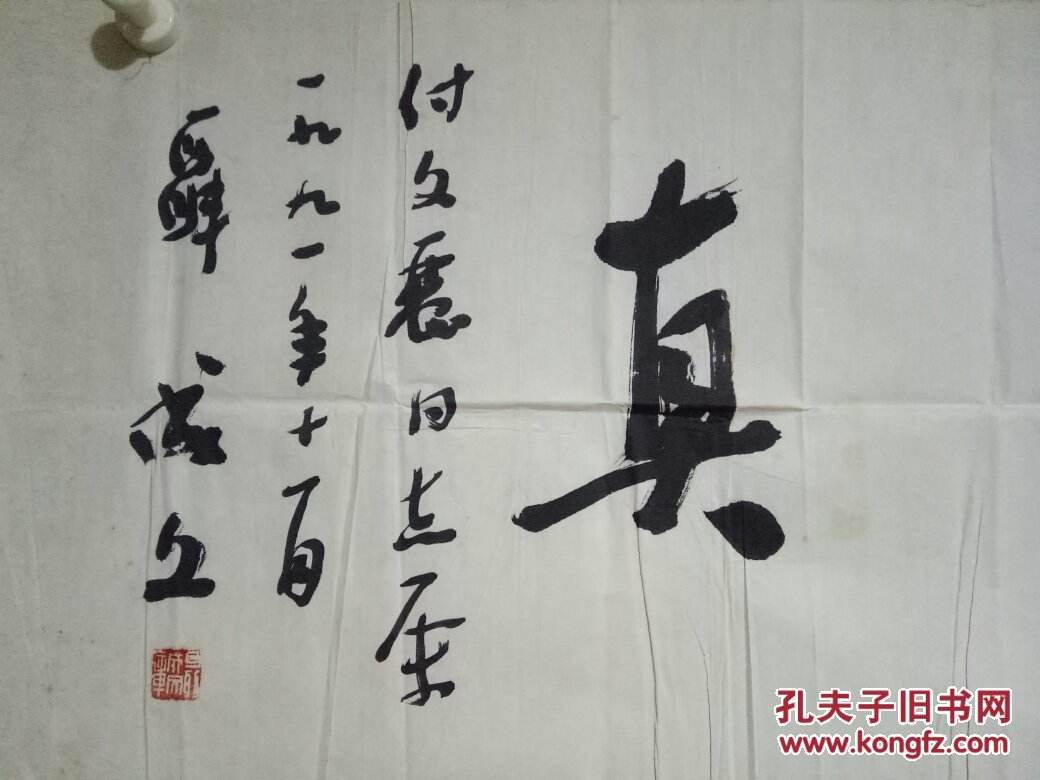 真
付文同志属
一九九一年十一月
聶成文
孔夫子旧书网
www.kongfz.com